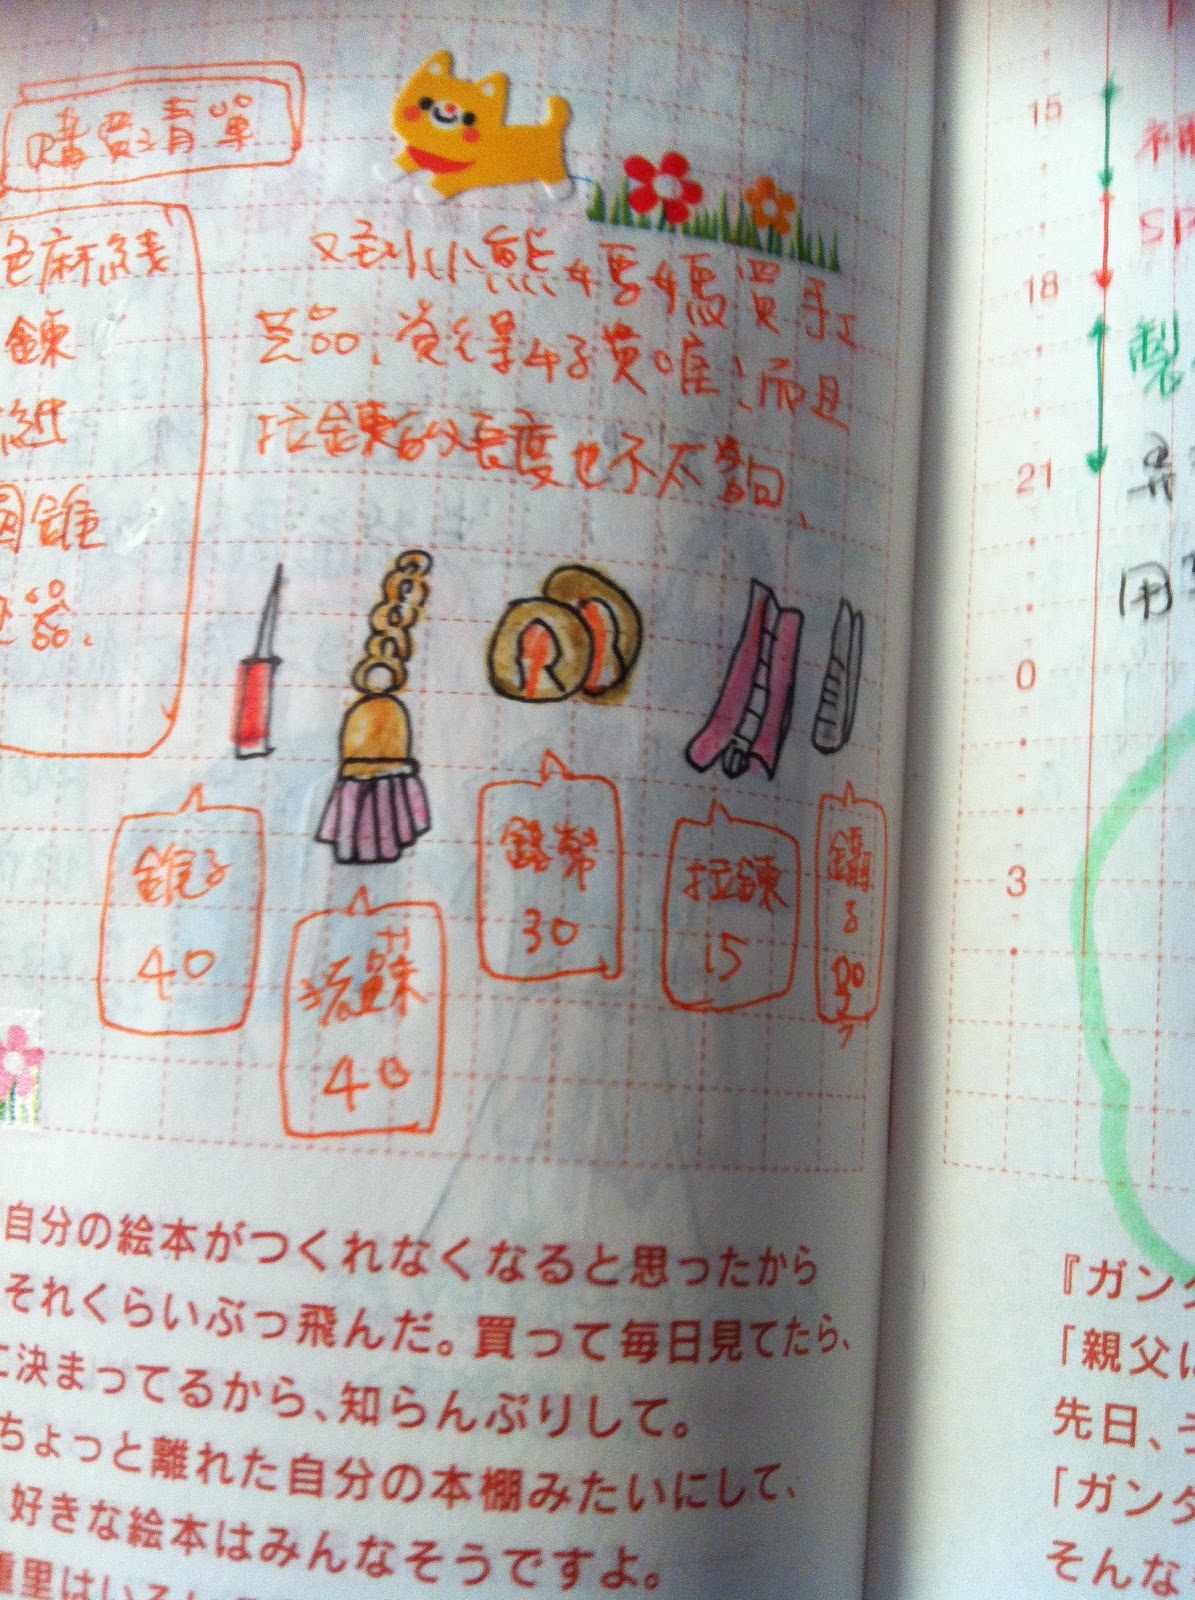 購買清單
色麻線
鍊
紙
圓錐
器.
又到小熊媽媽買手
芸品、覺得好貴喔、而且
拉鍊的長度也不太夠、
錐子
40
流蘇
40
30
拉鍊
15
鑷
子
30
自分の絵本がつくれなくなると思ったから
それくらいぶっ飛んだ。買って毎日見てたら、
に決まってるから、知らんぷりして。
ちょっと離れた自分の本棚みたいにして、
好きな絵本はみんなそうですよ。
重里はいろ
15
18
21
0
3
補
SP
製
用
『ガンダ
「親父に
先日、
「ガンダ
そんな